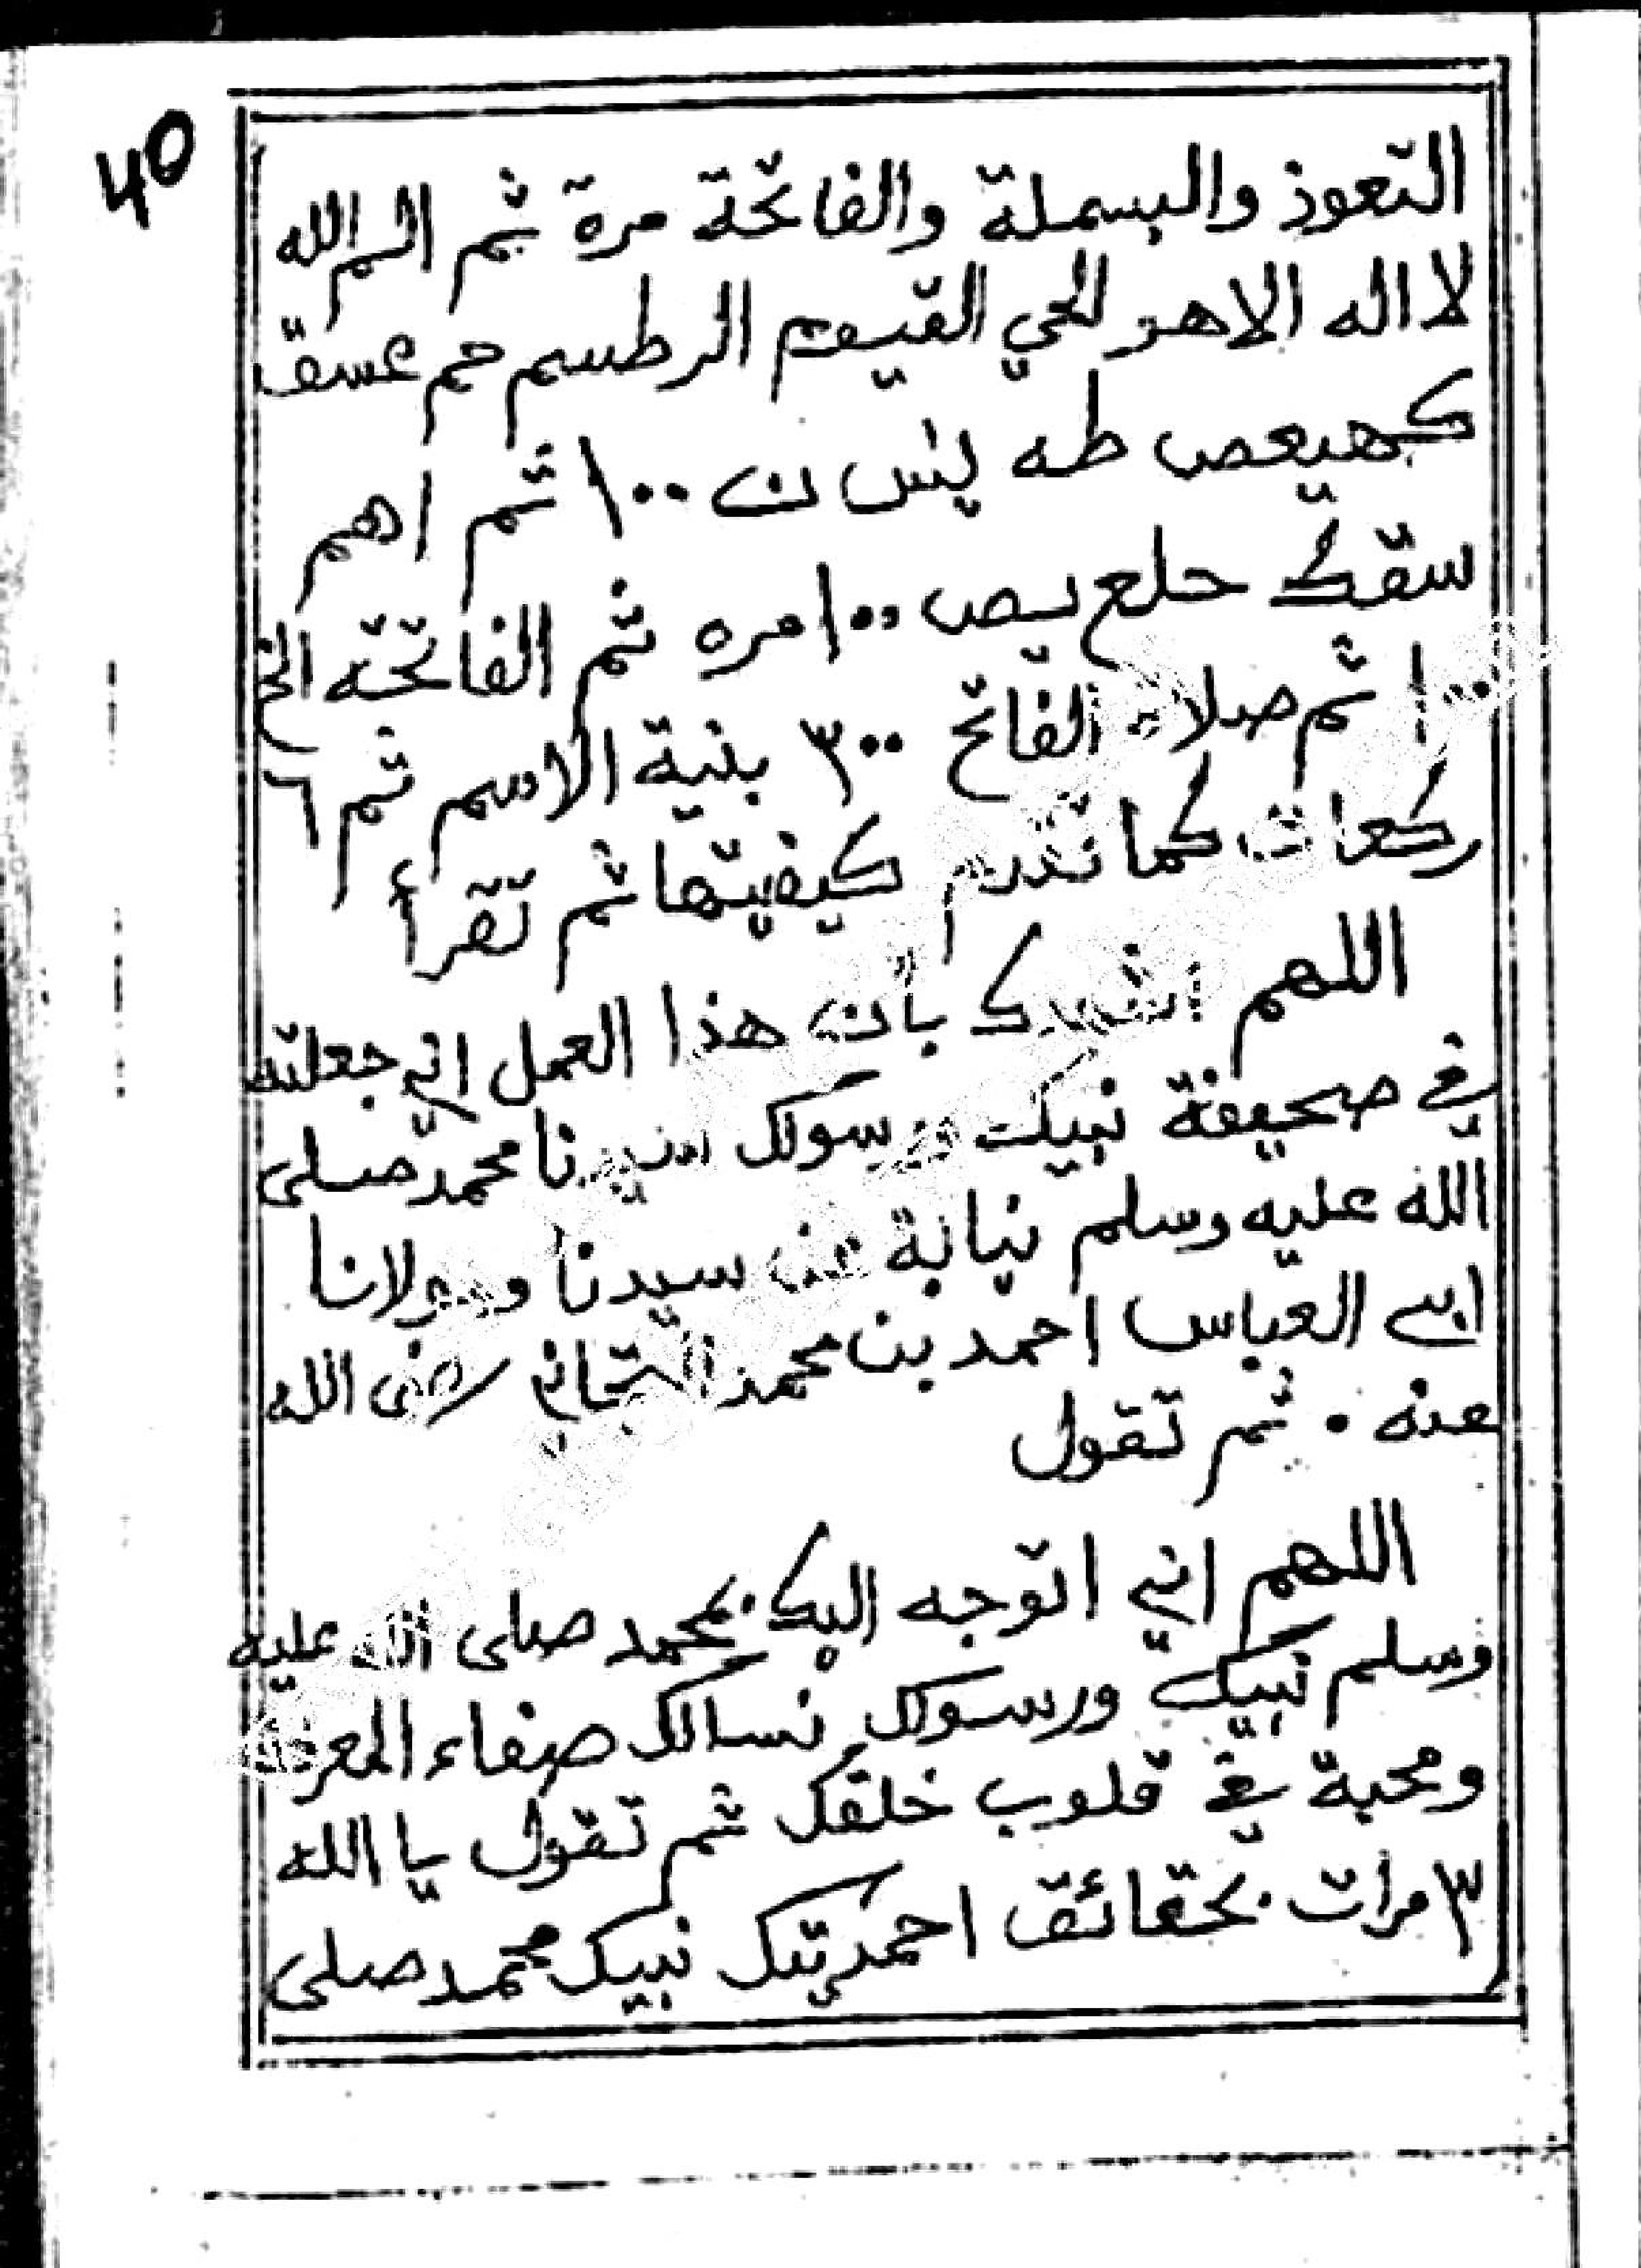 40
التعوذ والبسملة والفاتحة مرة ثم الم الله
لا اله الا هو الحي القيوم الر طسم حم عسق
كهيعص طه يس ن ١٠٠ ثم اهم
سقك حلع يص ١٠٠ مره ثم الفاتحه الخ
١٠٠ ثم صلاة الفاتح ٣٠٠ بنية الاسم ثم ٦
ركعات كما تقدم كيفيتها ثم تقرأ
اللهم اشهدك بأن هذا العمل اني جعلته
في صحيفة نبيك ورسولك سيدنا محمد صلى
الله عليه وسلم نيابة عن سيدنا ومولانا
ابي العباس احمد بن محمد التجاني رضى الله
عنه . ثم تقول
اللهم اني اتوجه اليك بمحمد صلى الله عليه
وسلم نبيك ورسولك نسالك صفاء المعرفة
ومحبة في قلوب خلقك ثم تقول يا الله
٣ مرات بحقائق احمديتك نبيك محمد صلى